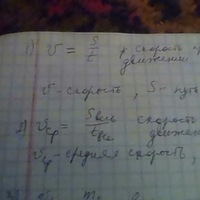 1) v = S/t скорость
движении
v - скорость, S - путь
2) vср = Sвсь/tвс скорость
движен
vср - средняя скорость,